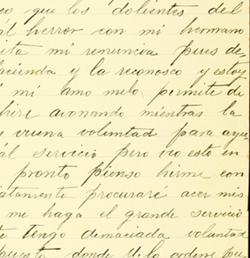 co que los dolientes del
al herror con mi hermano
ita mi renuncia pues de-
acienda y la reconosco y estoy
mi amo melo permite de
avonando mientras la
voluntad para ayu
al servicio pero no esto en
pronto pienso hirme con
atamente procuraré acer mis
me haga el grande servicio
te tengo demaciada voluntad
puesto donde U. lo ordene pou